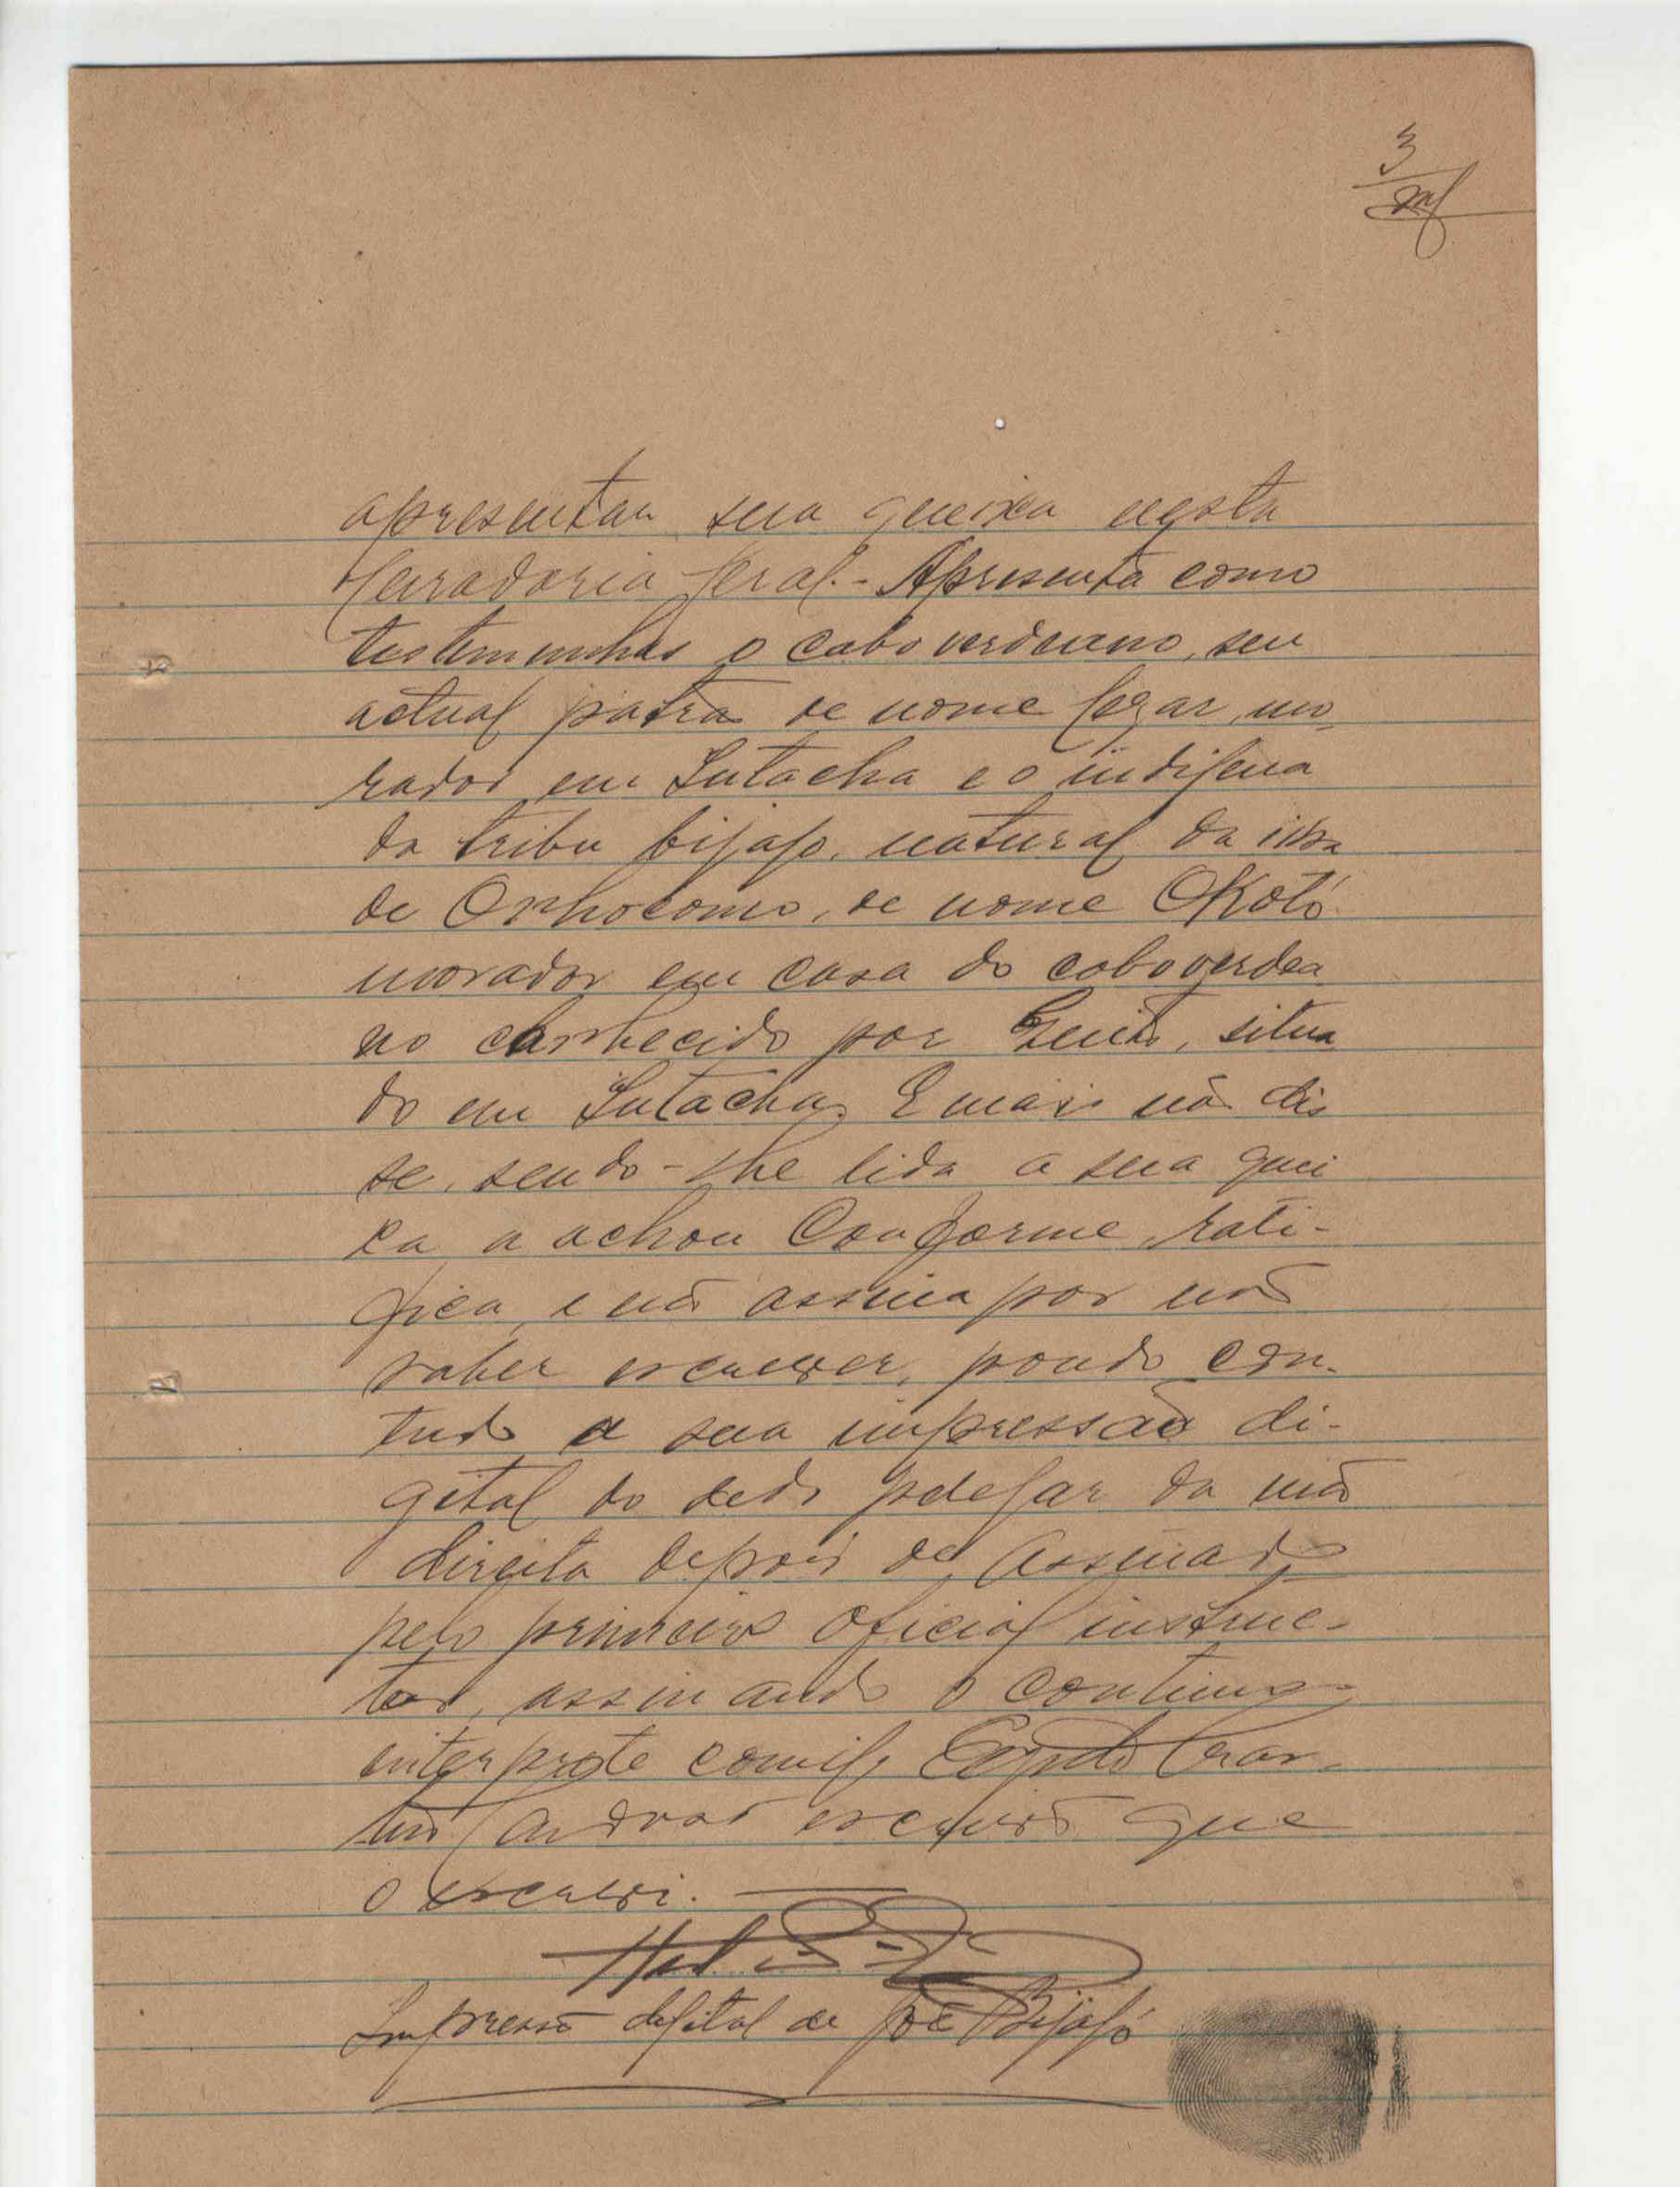 3
apresentar sua queixa nesta
Curadoria Geral.- Apresenta como
testemunhas o caboverdeano, seu
actual patrão de nome Cezar, mo-
rador em Intacha e o indigena
da tribu bijagó, natural da ilha
de Orhocomo, de nome Okotó
morador em casa do caboverdea
no conhecido por situa
do em Intacha. E mais não dis
se, sendo-lhe lida a sua quei
xa a achou conforme, rati-
fica, e não assina por não
saber escrever, pondo con-
tudo a sua impressão di-
gital do dedo polegar da mão
direita depois de assinado
pelo primeiro oficial instruc-
tor, assinando o
interprete comigo
escrivão que
o escrevi.
Impressão digital de José Bijagó